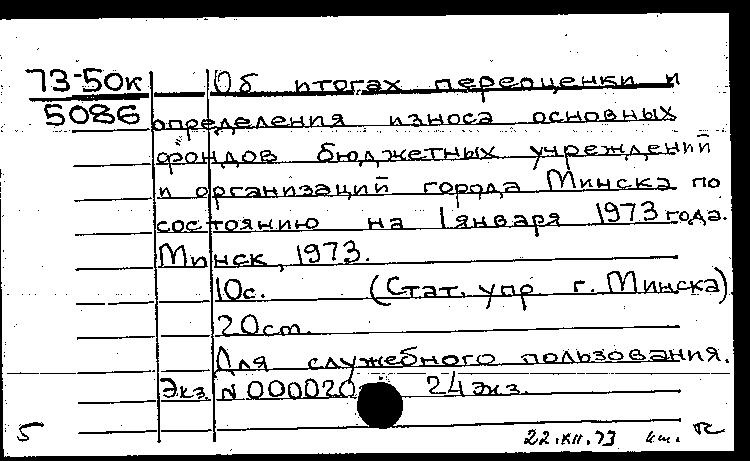 73-50к Об итогах переоценки и
5086 определения износа основных
фондов бюджетных учреждений
и организаций города Минска по
состоянию на 1 января 1973 года.
Минск, 1973.
10с. (Стат. упр г. Минска)
20см.
Для служебного пользования.
Экз N 000020 24 экз.
5 22.XII.73